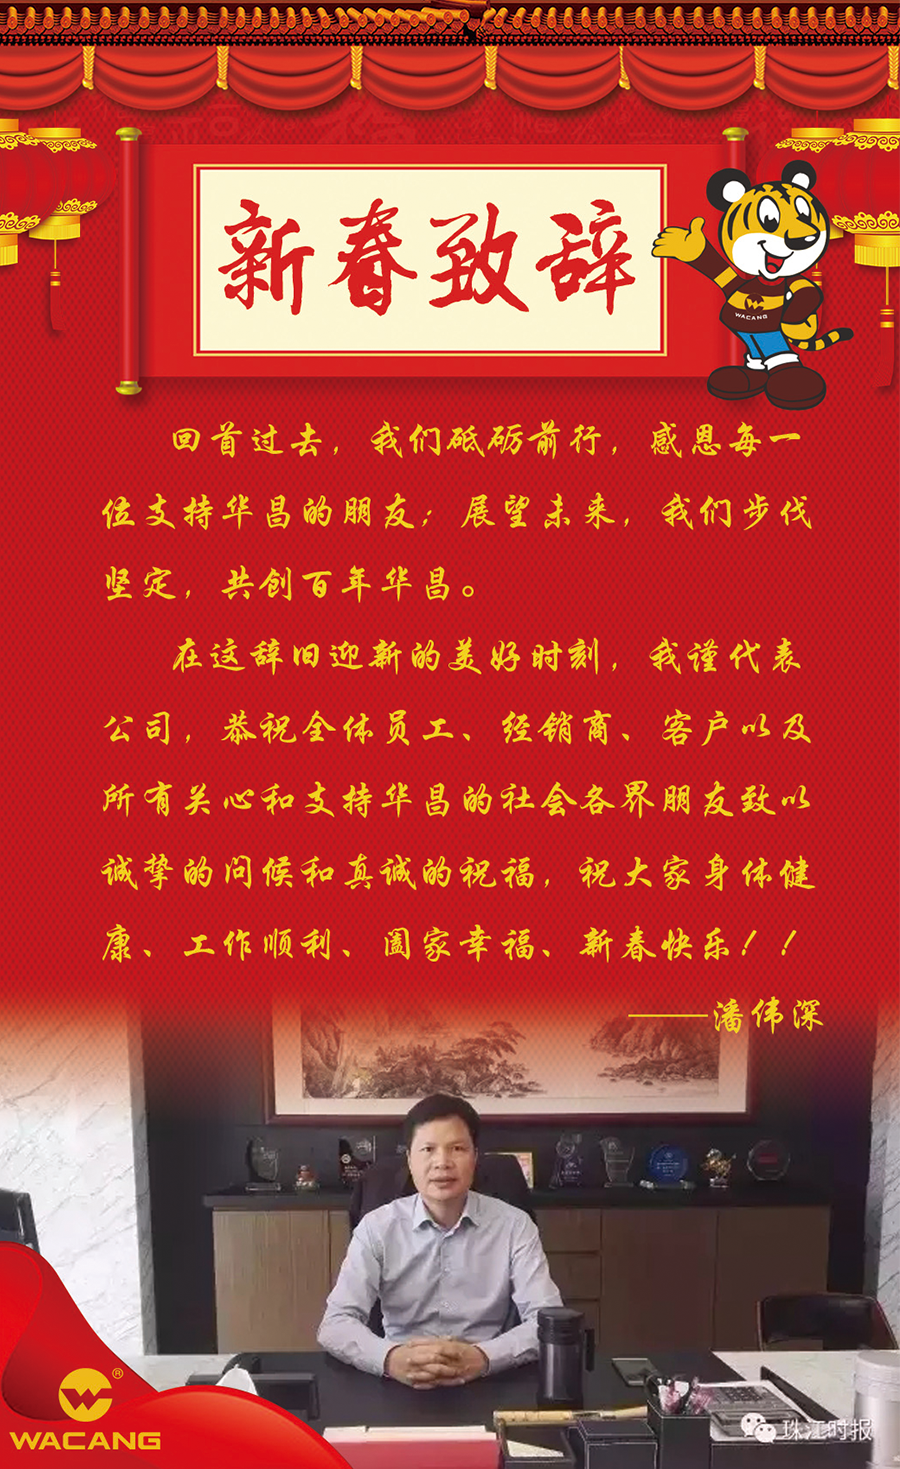 新春致辞
WACANG
回首过去，我们砥砺前行，感恩每一
位支持华昌的朋友；展望未来，我们步伐
坚定，共创百年华昌。
在这辞旧迎新的美好时刻，我谨代表
公司，恭祝全体员工、经销商、客户以及
所有关心和支持华昌的社会各界朋友致以
诚挚的问候和真诚的祝福，祝大家身体健
康、工作顺利、阖家幸福、新春快乐！！
——潘伟深
®
WACANG
珠江时报